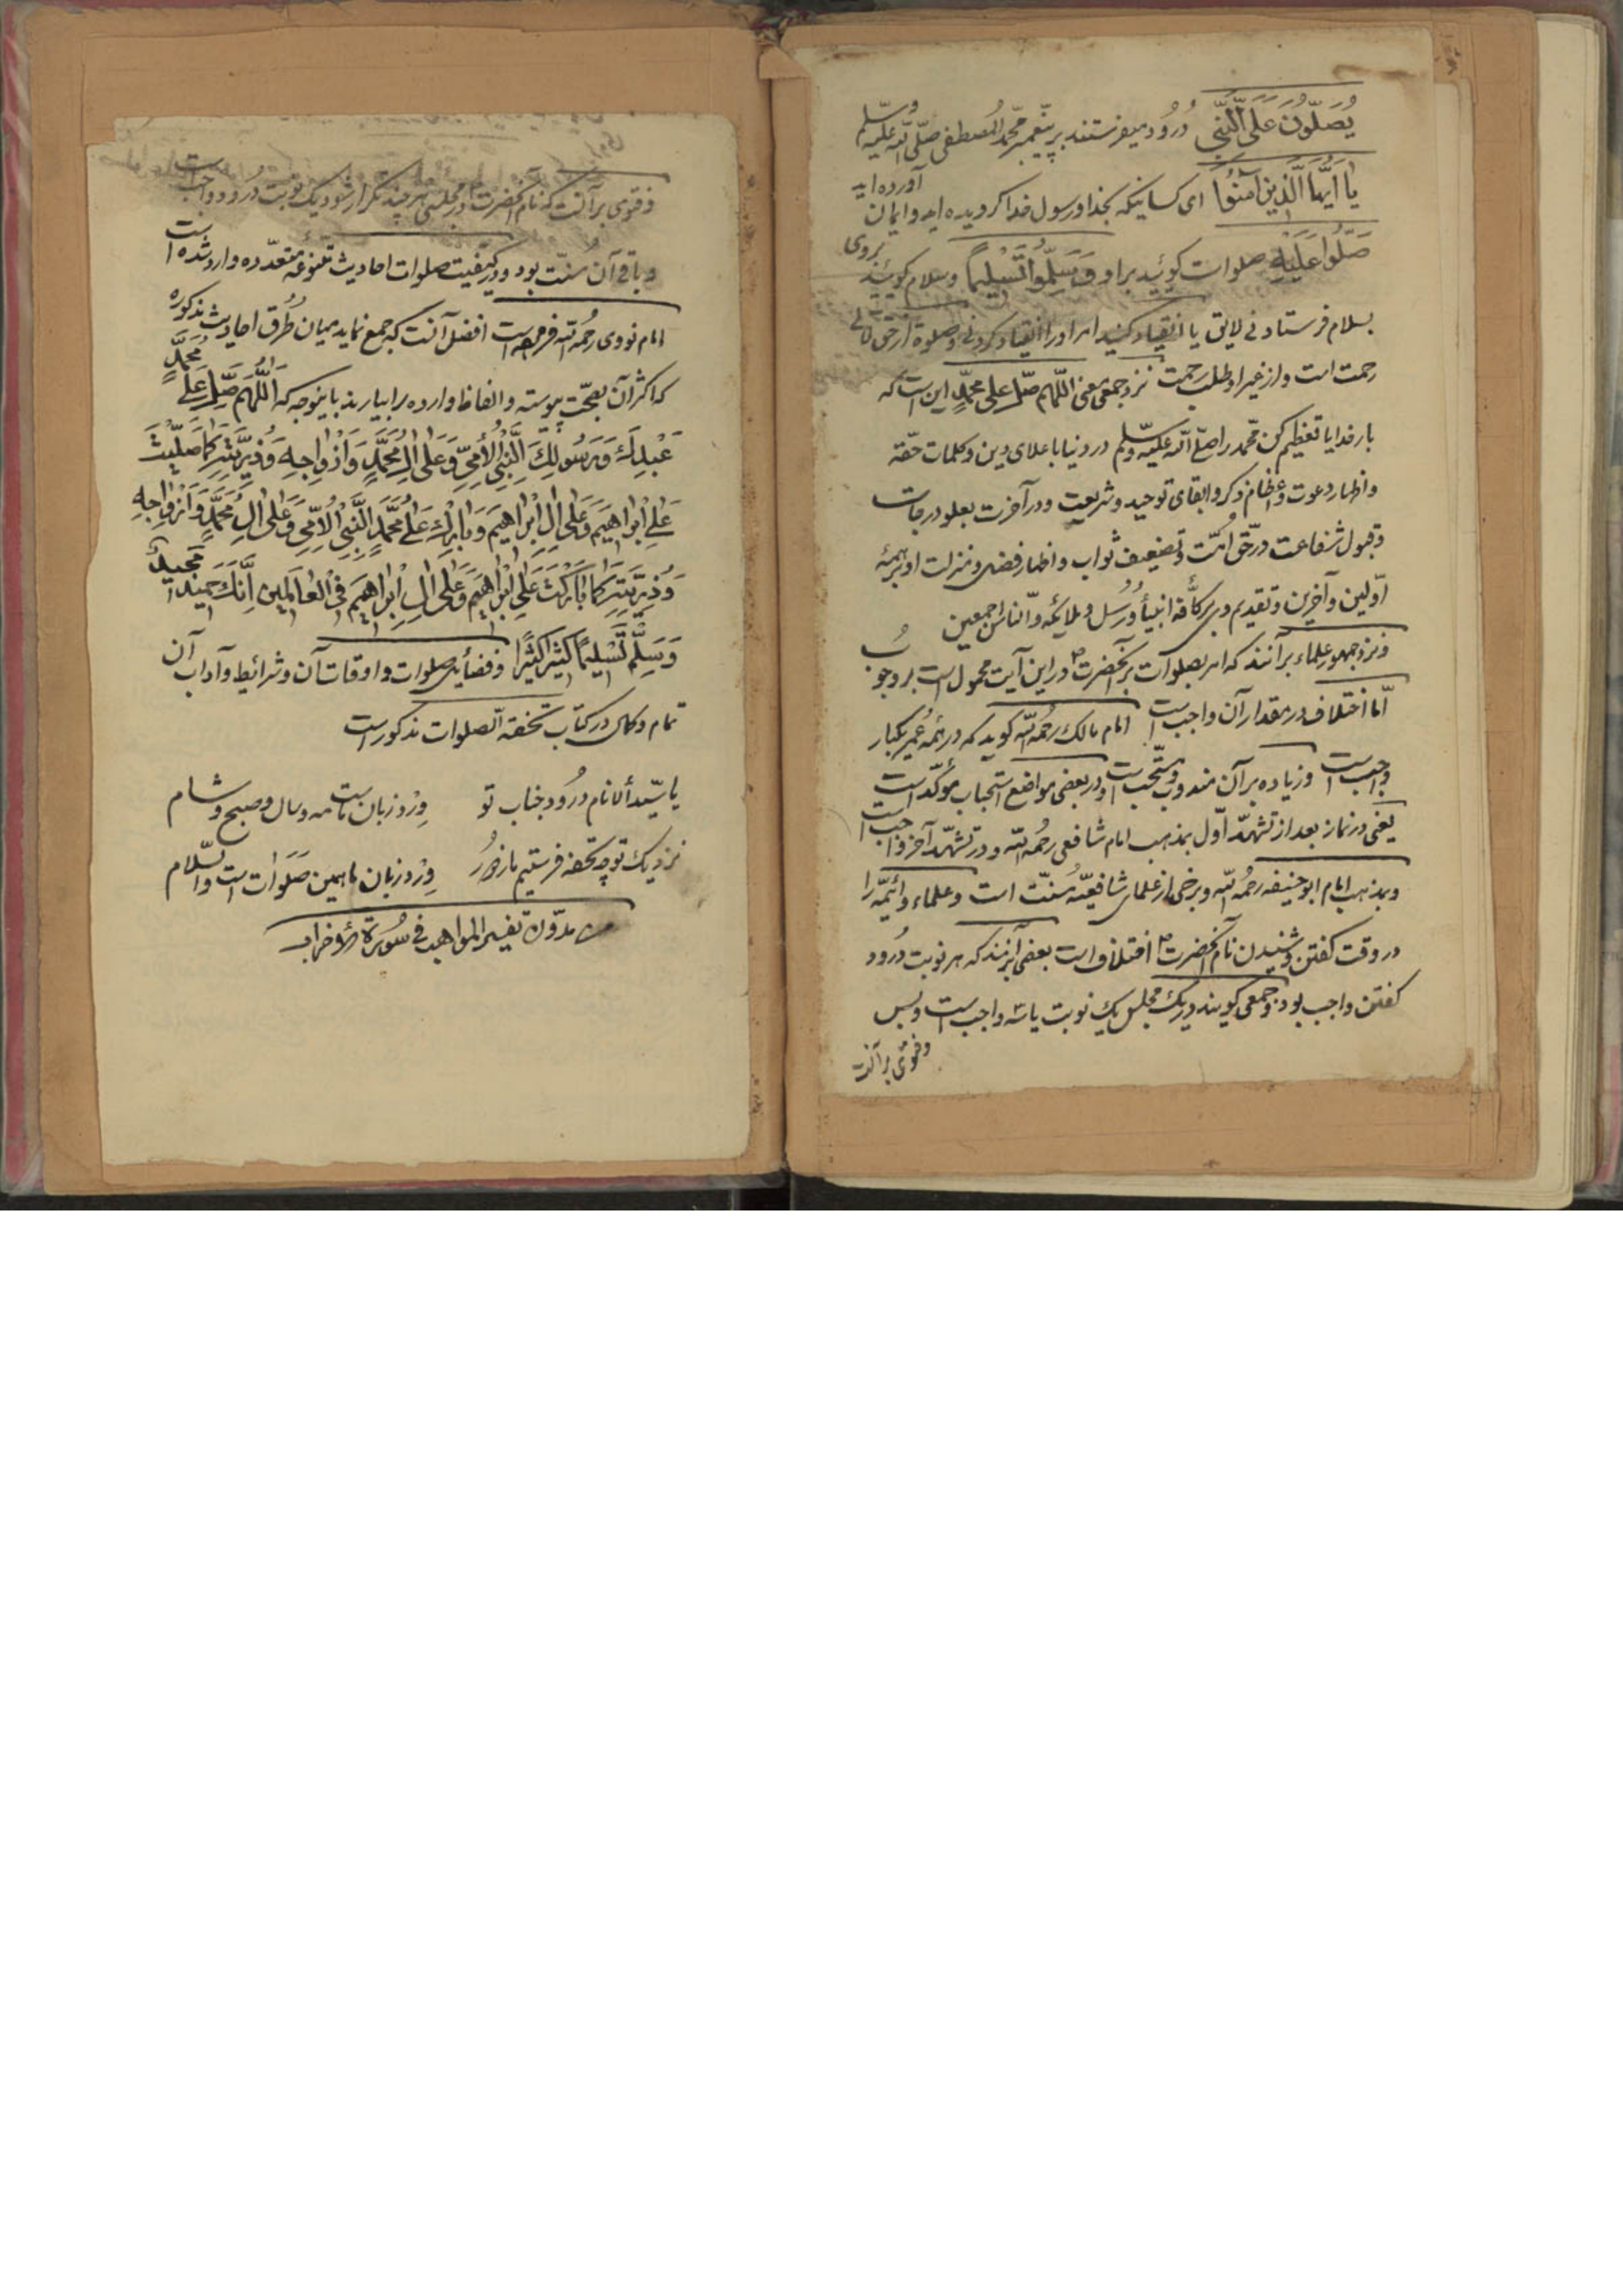 یُصَلُّونَ عَلَی النَّبِیِّ درود میفرستند بر پیغمبر محمد المصطفی صلّی اللّه علیه وسلّم
یا اَیُّهَا الَّذینَ آمَنُوا ای کسانیکه بخدا و رسول خدا کرویده اید و ایمان آورده اید
صَلُّوا عَلَیْهِ صلوات کوئید بر او وَسَلِّمُوا تَسْلیمًا و سلام کوئید بروی
بسلام فرستادنی لایق یا انقیاد کنید امر او را انقیاد کردنی و صلوة از حق تعالی
رحمت است و از غیر او طلب رحمت نزد جمعی معنی اللّهم صلّ علی محمّدٍ این است که
بار خدایا تعظیم کن محمد را صلّی اللّه علیه وسلّم در دنیا باعلای دین و کلمات حقّه
و اظهار دعوت و اعظام ذکر و ابقای توحید و شریعت و در آخرت بعلو درجات
و قبول شفاعت در حق اُمّت و تضعیف ثواب و اظهار فضل و منزلت او بر همهٔ
اوّلین و آخرین و تقدیم وی بر کافّه انبیأ و رُسُل و ملایکه و الناس اجمعین
و نزد جمهور علماء برآنند که امر بصلوات بر آنحضرت ص در این آیت محمول است بر وجوب
امّا اختلاف در مقدار آن واجب است امام مالک رحمُه اللّه کوید که در همهٔ عُمر یکبار
واجب است و زیاده بر آن مندوب و مستحب است و در بعضی مواضع استحباب موکّد است
یعنی در نماز بعد از تشهّد اوّل بمذهب امام شافعی رحمُه اللّه و در تشهّد آخر واجب است
و بمذهب امام ابو حنیفه رحمُه اللّه و برخی از علمای شافعیّه سُنّت است و علماء و ائمّه را
در وقت کفتن و شنیدن نام آنحضرت ص اختلاف است بعضی برانند که هر نوبت درُود
کفتن واجب بود و جمعی کویند در یک مجلس یک نوبت یا سه واجب است و بس
و فتوی بر آنست
و فتوی بر آنست که نام آنحضرت در مجلسی هر چند تکرار شود یک نوبت درود واجب است
و باقی آن سُنّت بود و در کیفیت صلوات احادیث متنوعه متعدّده وارد شده است
امام نووی رحمُه اللّه فرموده است افضل آنست که جمع نماید میان طُرق احادیث مذکوره
که اکثر آن بصحّت پیوسته و الفاظ وارده را بیارید باینوجه که اَللّهُمَّ صَلِّ عَلی مُحَمَّدٍ
عَبْدِكَ وَرَسُولِكَ النَّبِیِّ الْاُمِّیِّ وَعَلی آلِ مُحَمَّدٍ وَاَزْواجِهِ وَذُرِّیَّتِهِ کَما صَلَّیْتَ
عَلی اِبْراهیمَ وَعَلی آلِ اِبْراهیمَ وَبارِكْ عَلی مُحَمَّدٍ النَّبِیِّ الْاُمِّیِّ وَعَلی آلِ مُحَمَّدٍ وَاَزْواجِهِ
وَذُرِّیَّتِهِ کَما بارَکْتَ عَلی اِبْراهیمَ وَعَلی آلِ اِبْراهیمَ فِی الْعالَمینَ اِنَّكَ حَمیدٌ مَجیدٌ
وَسَلِّمْ تَسْلیمًا کَثیرًا کَثیرًا و فضأیل صلوات و اوقات آن و شرائیط و آداب آن
تمام و کمال در کتاب تحفة الصلوات مذکور است
یا سیّد ألانام درُود جناب تو وِرْد زبان ماست مه و سال و صبح و شام
نزدیک تو چه تحفه فرستیم ما ز دُور وِرْد زبان ما همین صَلَوات است والسّلام
من مدوّنة تفسیر المواهب فی سُورة الأحزاب